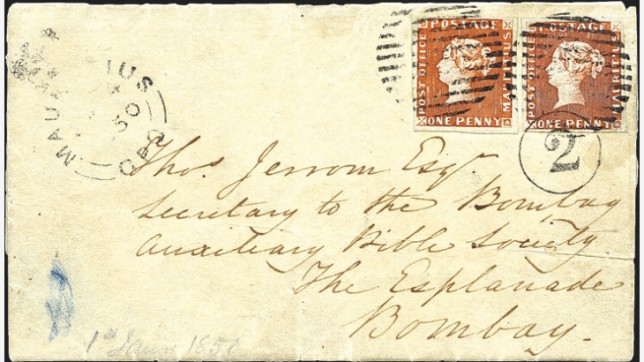 POST OFFICE POSTAGE MAURITIUS ONE PENNY
POST OFFICE POSTAGE MAURITIUS ONE PENNY
MAURITIUS
50
GPO
2
Thos. Jerrom Esqr.
Secretary to the Bombay
Auxiliary Bible Society
The Esplanade
Bombay.
1st Jany 1850